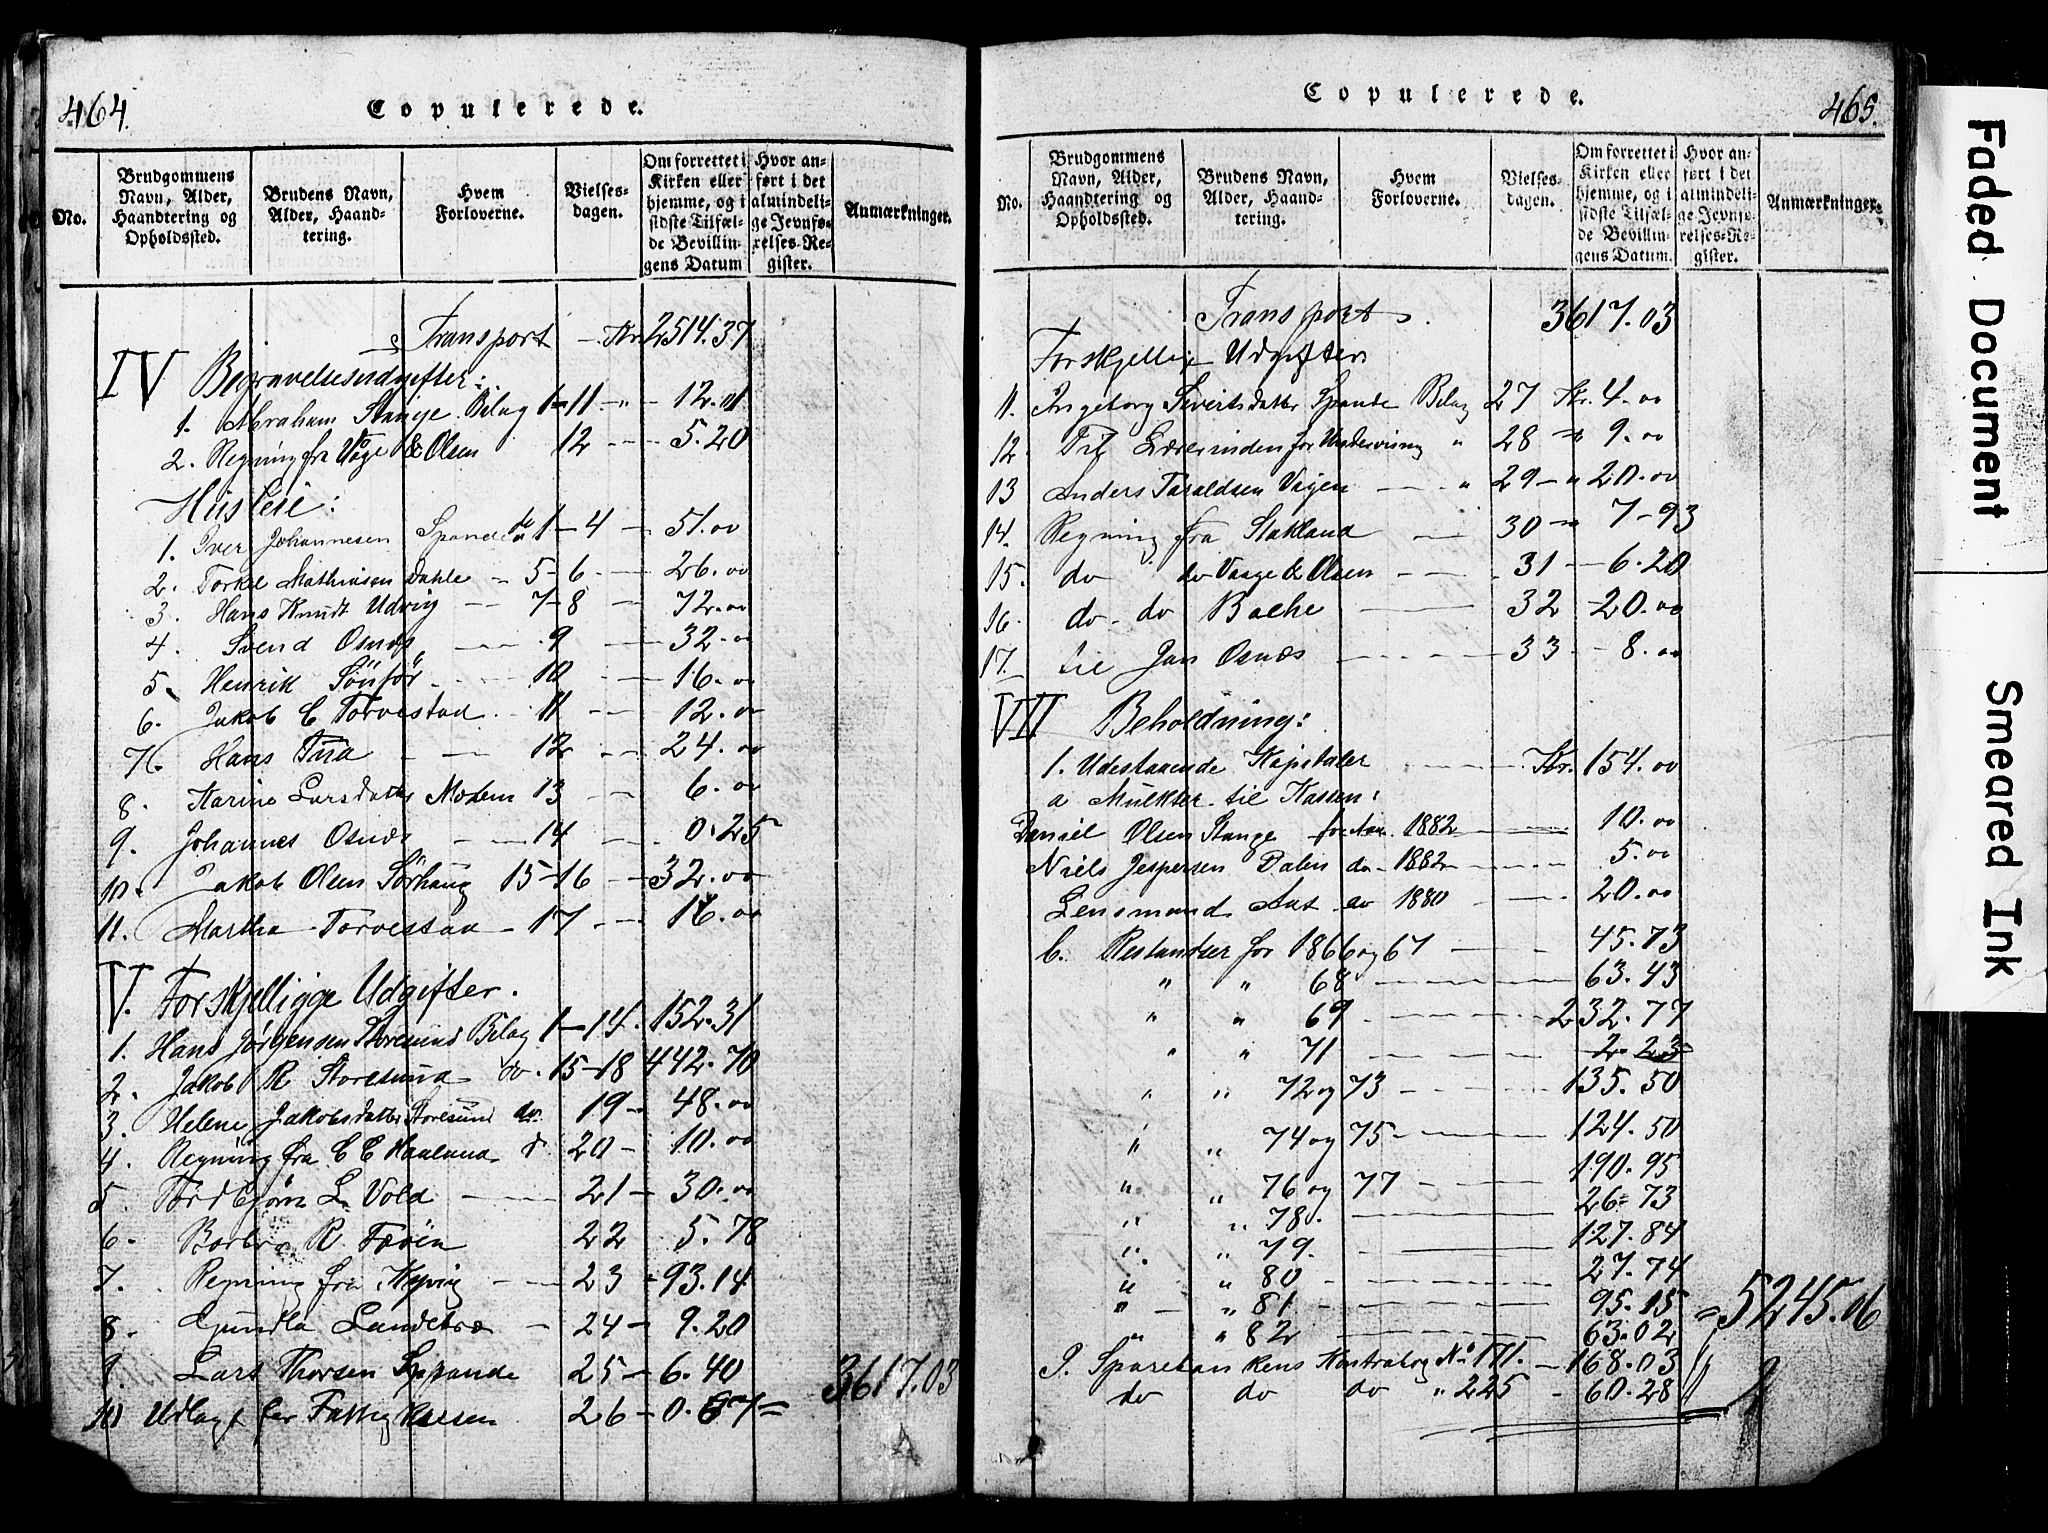 464.
Copulerede.
No.
Brudgommens Navn, Alder, Haandtering og Opholdssted.
Brudens Navn, Alder, Haandtering.
Hvem Forloverne.
Vielsesdagen.
Om forrettet i Kirken eller hjemme, og i sidste Tilfælde Bevillingens Datum
Hvor anført i det almindelige Jevnførelses-Register.
Anmærkninger.
Transport - Kr. 2514.37
IV Begravelsesudgifter:
1. Abraham Stange Bilag 1-11 - " - 12.01
2. Regning fra Våge & Olsen 12 - - - 5.20
Husleie:
1. Iver Johannesen Spande do 1-4 - 51.00
2. Torkel Mathiasen Dahle - 5-6 - - 26.00
3. Hans Knudt Udvig - - 7-8 - - 72.00
4. Svend Osnæs - - - 9 - - 32.00
5. Henrik Sönför - - 10 - - 16.00
6. Jakob C Torvestad - - 11 - - 12.00
7. Hans Tua - - 12 - - 24.00
8. Karine Larsdatter Moksem 13 - - 6.00
9. Johannes Osnæs - - 14 - - 0.25
10. Jakob Olsen Sörhaug 15-16 - - 32.00
11. Martha Torvestad - 17 - - 16.00
V. Forskjellige Udgifter.
1. Hans Jørgensen Storesund Bilag 1-14. 152.31
2. Jakob R Storesund do. 15-18 442.70
3. Helene Jakobsdatter Storesund do. 19 - 48.00
4. Regning fra C C Haaland d 20 - 10.00
5. Tordbjørn L. Vold - - - 21 - 30.00
6. Borbro R 22 5.78
7. Regning fra - - 23 - 93.14
8. Gundla Landebro - 24 - 9.20
9. Lars Thorsen Spande 25 - 6.40
10 Udlagt for Fattig Kassen 26 - 0.67 = 3617.03
465.
Copulerede.
No.
Brudgommens Navn, Alder, Haandtering og Opholdssted.
Brudens Navn, Alder, Haandtering.
Hvem Forloverne.
Vielsesdagen.
Om forrettet i Kirken eller hjemme, og i sidste Tilfælde Bevillingens Datum.
Hvor anført i det almindelige Jevnførelses-Register.
Anmærkninger.
Transport 3617.03
Forskjellige Udgifter
11. Ingeborg Sivertsdatter Spande Bilag 27 Kr. 4.00
12. Til Lærerinden for Undervisning " 28 - " 9.00
13 Anders Taraldsen Vågen - - - " 29 - " 20.00
14. Regning fra Stakland - - 30 - " 7-93
15. do do Vaage & Olsen - - - 31 - - 6.20
16. do - do Bache - - - 32 - 20.00
17. til Jan Osnæs - - - - - 33 - - 8.00
VII Beholdning:
1. Udestaaende Kapitaler - - - - Kr. 154.00
a Mulkter til Kassen:
Daniel Olsen Stange for Aar 1882 - - - 10.00
Niels Jespersen Dalen do - 1882 - - - 5.00
Lensmand Aas do 1880 - - - 20.00
b. Restandser for 1866 og 67 - - - 45.73
" " 68 - - - - 63.43
" " 69 - - - - 232.77
" " 71 - - - - 2-23
" " 72 og 73 - - - - 135.50
" " 74 og 75 - - - - 124.50
" " 76 og 77 - - - - 190.95
" " 78. - - - - 26-73
" " 79. - - - - 127.84
" " 80 - - - - 27.74
" - " 81 - - - - 95.15
" " 82 - - - - 63.02 = 5245.06
Sparebankens Kontrabog No 171. - 168.03
do do do " 225 - 60.28
Faded Document
Smeared Ink